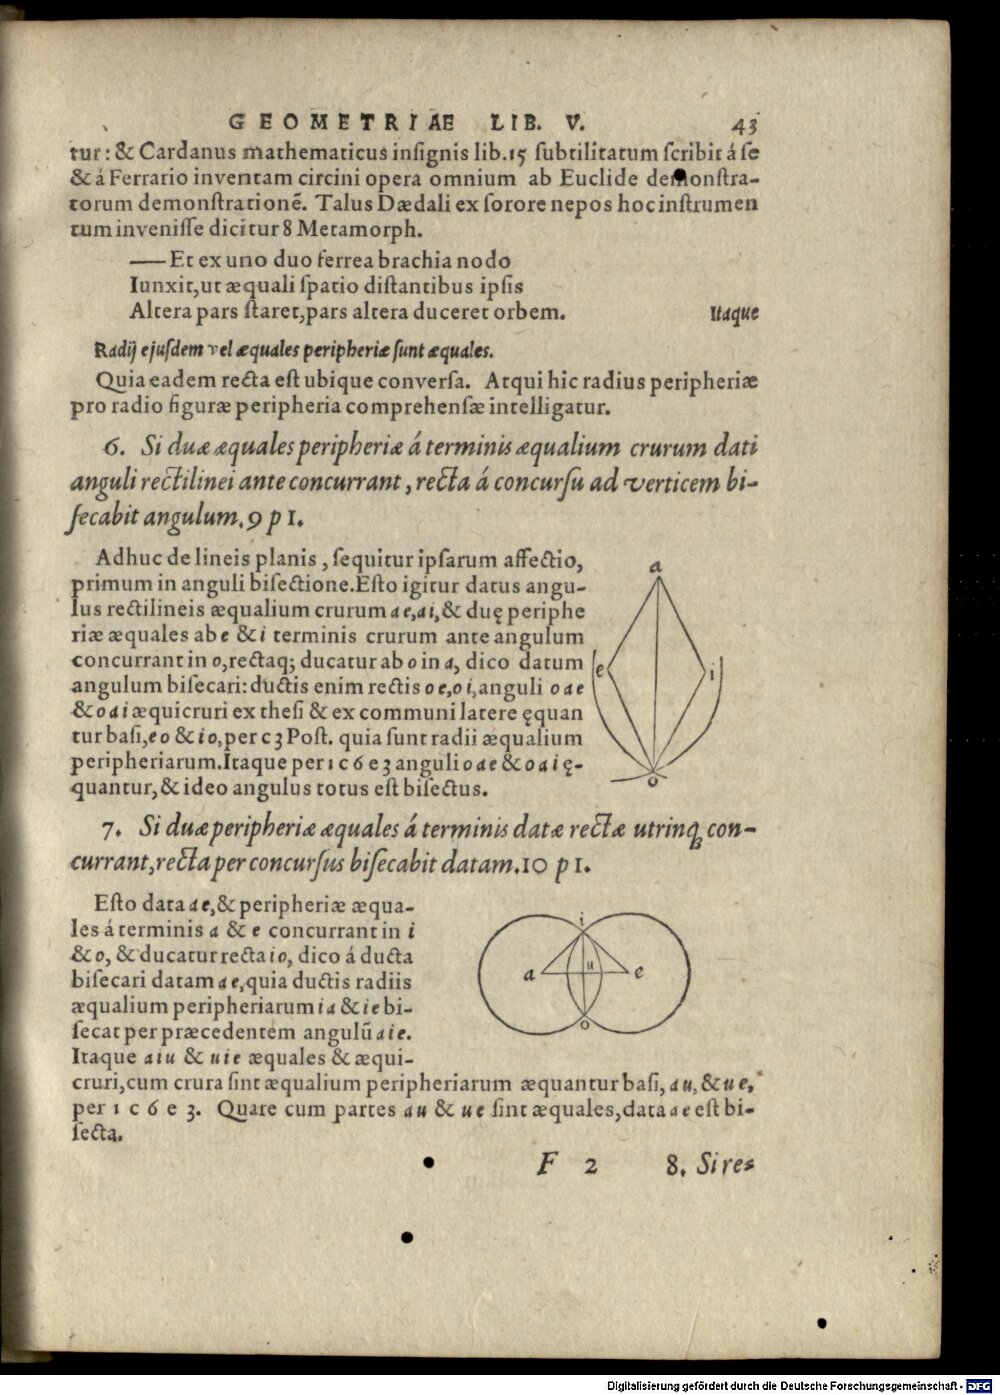 GEOMETRIÆ LIB. V. 43
tur: & Cardanus mathematicus inſignis lib.15 ſubtilitatum ſcribit á ſe
& á Ferrario inventam circini opera omnium ab Euclide demonſtra-
torum demonſtrationē. Talus Dædali ex ſorore nepos hoc inſtrumen
tum inveniſſe dicitur 8 Metamorph.
—— Et ex uno duo ferrea brachia nodo
Iunxit, ut æquali ſpatio diſtantibus ipſis
Altera pars ſtaret, pars altera duceret orbem. Itaque
Radij ejuſdem vel æquales peripheriæ ſunt æquales.
Quia eadem recta eſt ubique converſa. Atqui hic radius peripheriæ
pro radio figuræ peripheria comprehenſæ intelligatur.
6. Si duæ æquales peripheriæ á terminis æqualium crurum dati
anguli rectilinei ante concurrant, recta á concurſu ad verticem bi-
ſecabit angulum. 9 p 1.
Adhuc de lineis planis, ſequitur ipſarum affectio,
primum in anguli biſectione. Eſto igitur datus angu-
lus rectilineis æqualium crurum ae, ai, & duę periphe
riæ æquales ab e & i terminis crurum ante angulum
concurrant in o, rectaq; ducatur ab o in a, dico datum
angulum biſecari: ductis enim rectis oe, oi, anguli oae
& oai æquicruri ex theſi & ex communi latere ęquan
tur baſi, eo & io, per c 3 Poſt. quia ſunt radii æqualium
peripheriarum. Itaque per 1 c 6 e 3 anguli oae & oai ę-
quantur, & ideo angulus totus eſt biſectus.
a
e
i
o
7. Si duæ peripheriæ æquales á terminis datæ rectæ utrinq; con-
currant, recta per concurſus biſecabit datam. 10 p 1.
Eſto data ae, & peripheriæ æqua-
les á terminis a & e concurrant in i
& o, & ducatur recta io, dico á ducta
biſecari datam ae, quia ductis radiis
æqualium peripheriarum ia & ie bi-
ſecat per præcedentem angulū aie.
Itaque aiu & uie æquales & æqui-
cruri, cum crura ſint æqualium peripheriarum æquantur baſi, au, & ue,
per 1 c 6 e 3. Quare cum partes au & ue ſint æquales, data ae eſt bi-
ſecta.
i
a
u
e
o
F 2 8. Si res
Digitalisierung gefördert durch die Deutsche Forschungsgemeinschaft - DFG